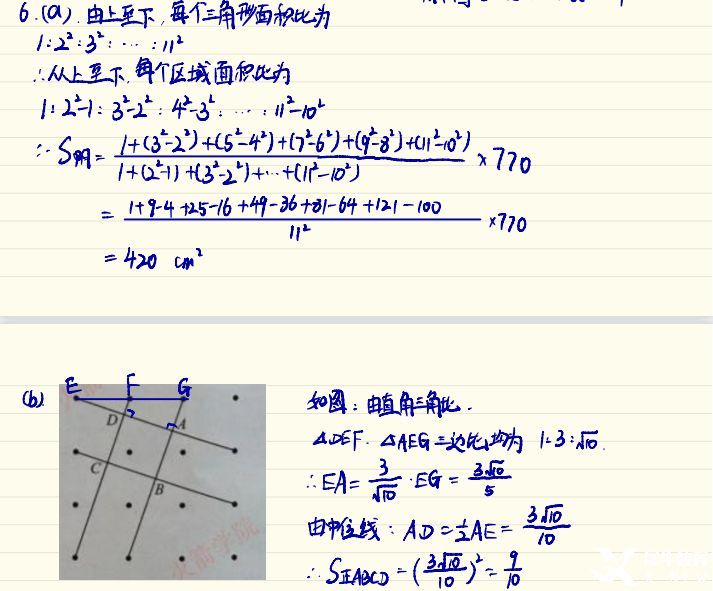 6.(a). 由上至下,每个三角形面积比为
1:2²:3²:……:11²
∴从上至下,每个区域面积比为
1:2²-1:3²-2²:4²-3²:……:11²-10²
∴S阴= \frac{1+(3²-2²)+(5²-4²)+(7²-6²)+(9²-8²)+(11²-10²)}{1+(2²-1)+(3²-2²)+…+(11²-10²)} ×770
= \frac{1+9-4+25-16+49-36+81-64+121-100}{11²} ×770
= 420 cm²
(b)
E F G
D A
C B
火箭学院
如图:由直角三角比.
△DEF. △AEG三边比均为 1:3:√10.
∴EA= \frac{3}{√10}·EG= \frac{3√10}{5}
由中位线:AD=\frac{1}{2}AE= \frac{3√10}{10}
∴S正ABCD=(\frac{3√10}{10})²= \frac{9}{10}